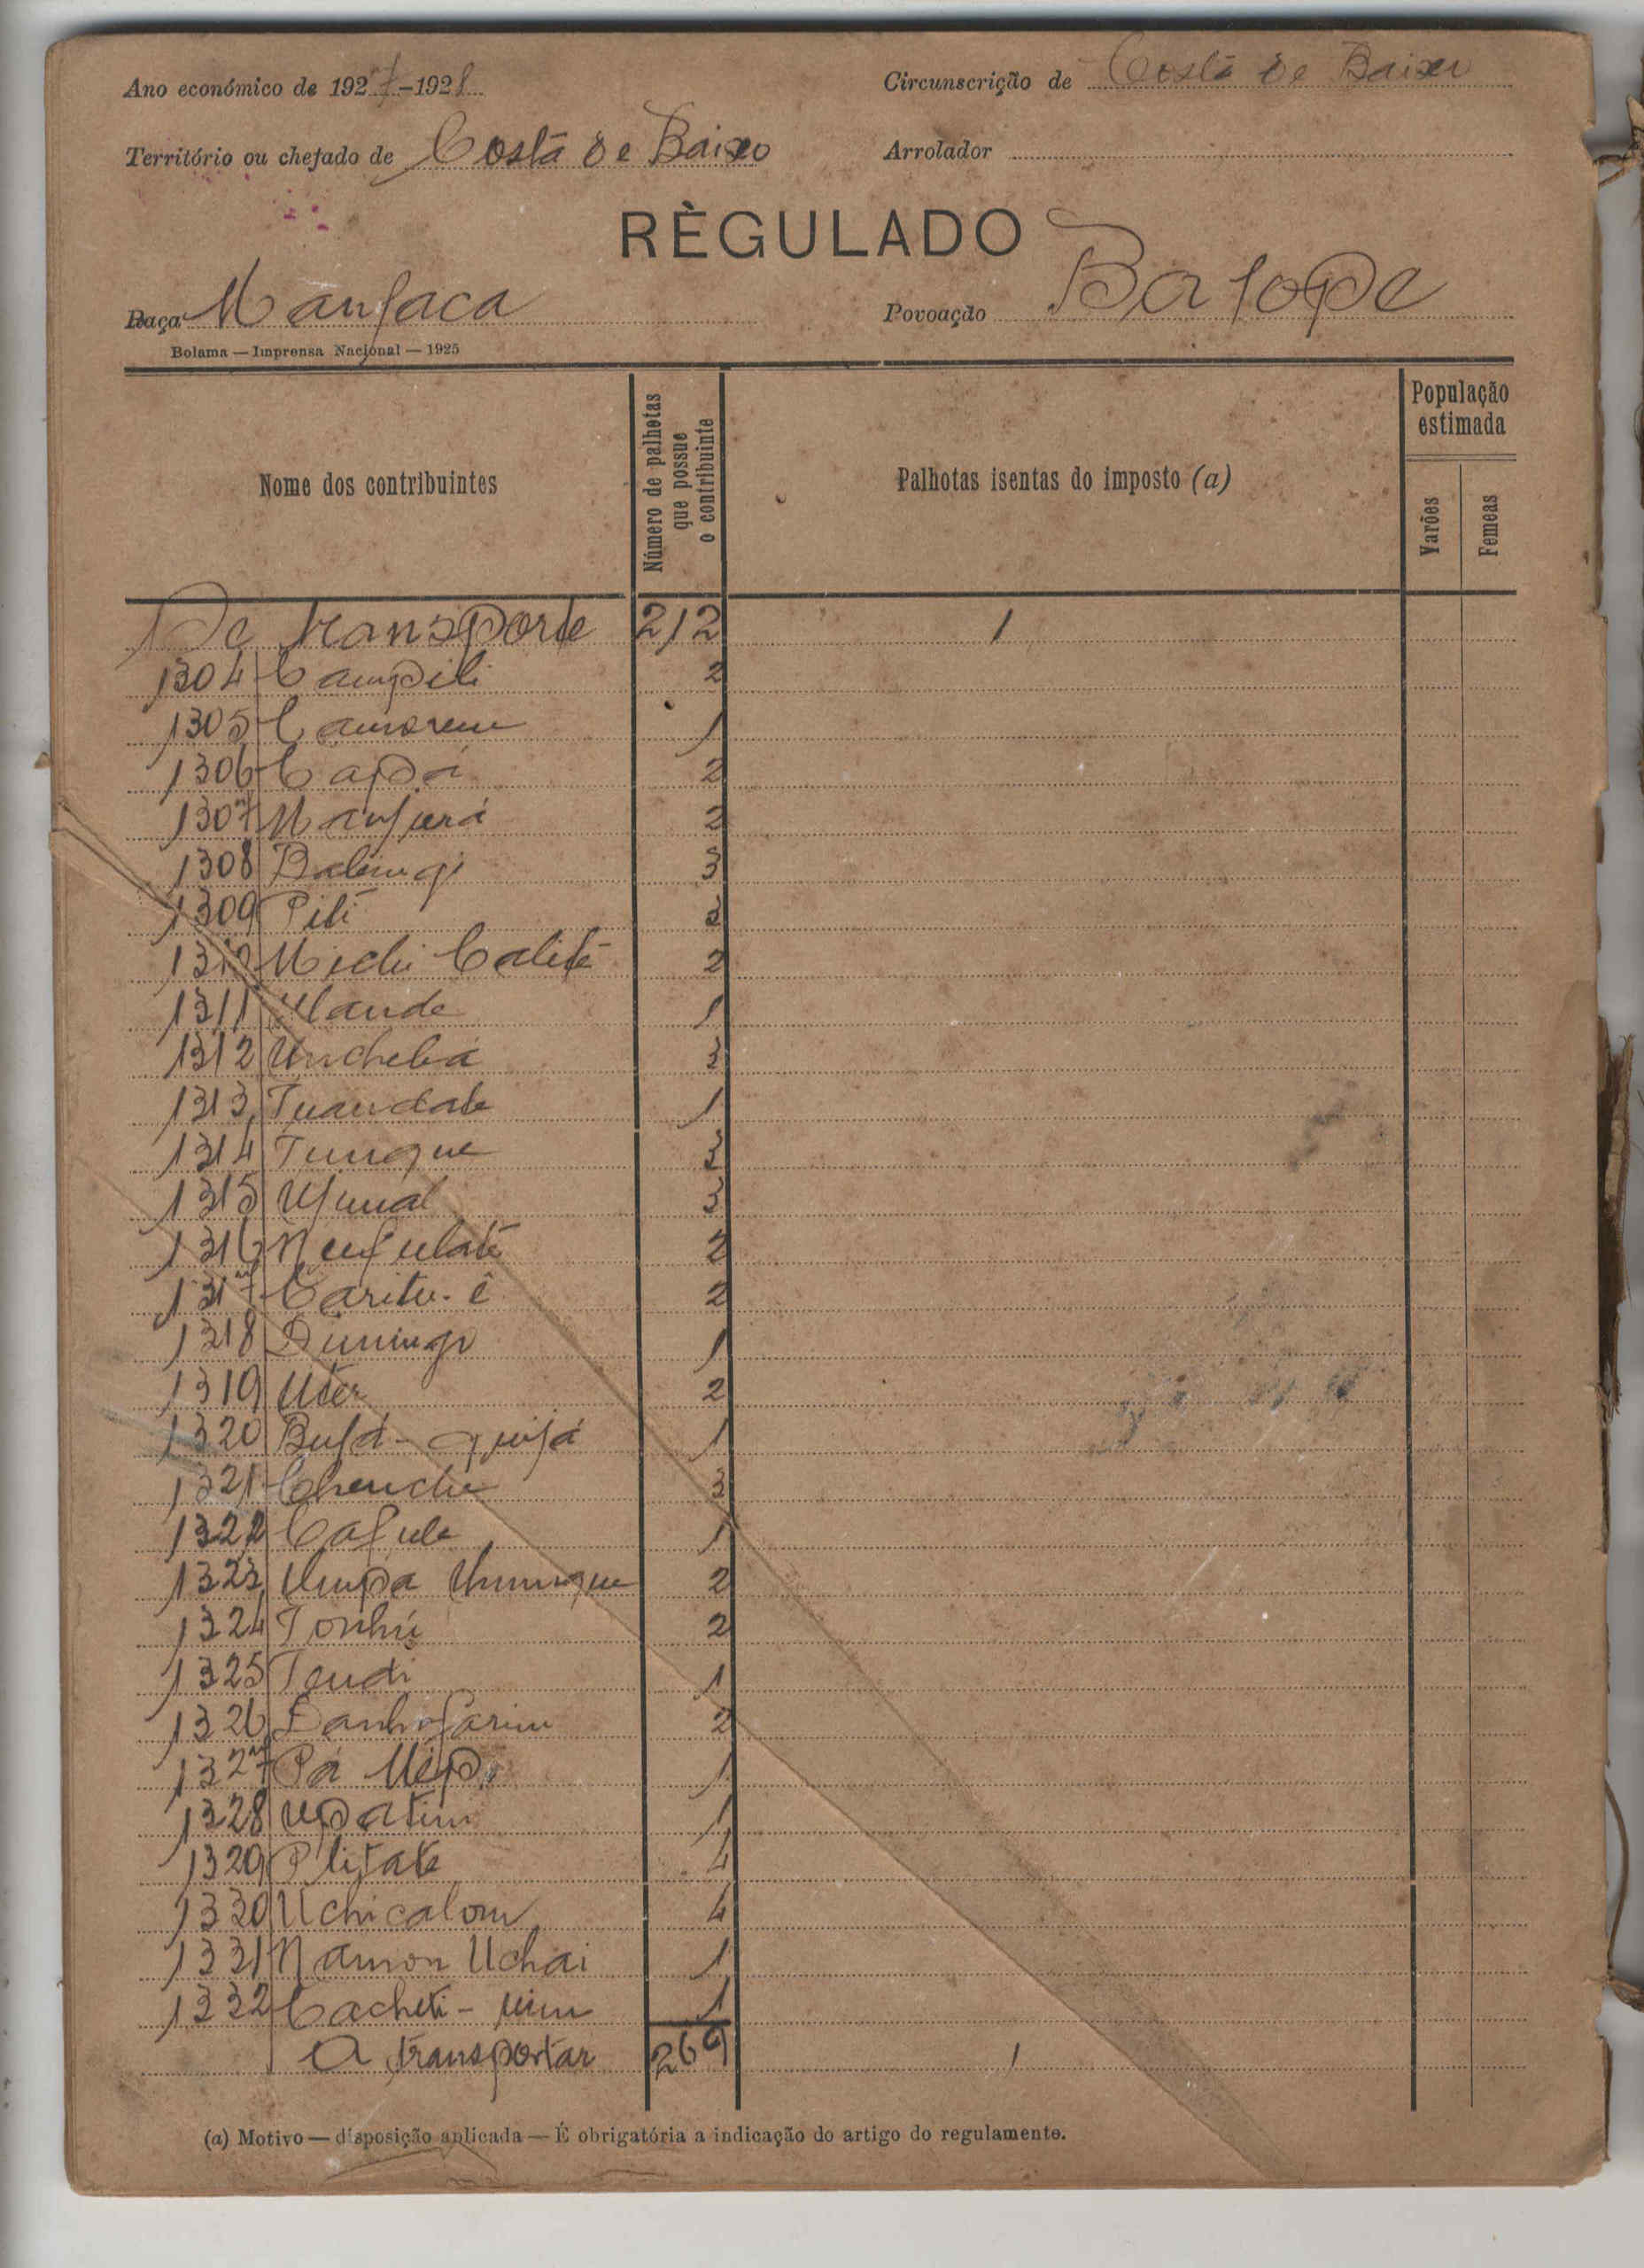 Ano económico de 1927-1928
Circunscrição de Costa de Baixo
Território ou chefado de Costa de Baixo
Arrolador
RÈGULADO
Raça Manjaca
Povoação
Bolama — Imprensa Nacional — 1925
Nome dos contribuintes
Número de palhotas que possue o contribuinte
Palhotas isentas do imposto (a)
População estimada
Varões
Femeas
De transporte 212 1
1304 Campili 2
1305 1
1306 Capá 2
1307 Manjurá 2
1308 3
1309 Piti 2
1310 2
1311 1
1312 Unchebá 3
1313 Tuandate 1
1314 Tunque 3
1315 3
1316 2
1317 Caritu-ê 2
1318 Dumingo 1
1319 Uter 2
1320 1
1321 Chenche 3
1322 Cafule 1
1323 2
1324 Tonhú 2
1325 Tendi 1
1326 2
1327 Pá 1
1328 Upatim 1
1329 Plitate 4
1330 Uchicalom 4
1331 Namon Uchai 1
1332 1
A transportar 269 1
(a) Motivo — disposição aplicada — É obrigatória a indicação do artigo do regulamento.